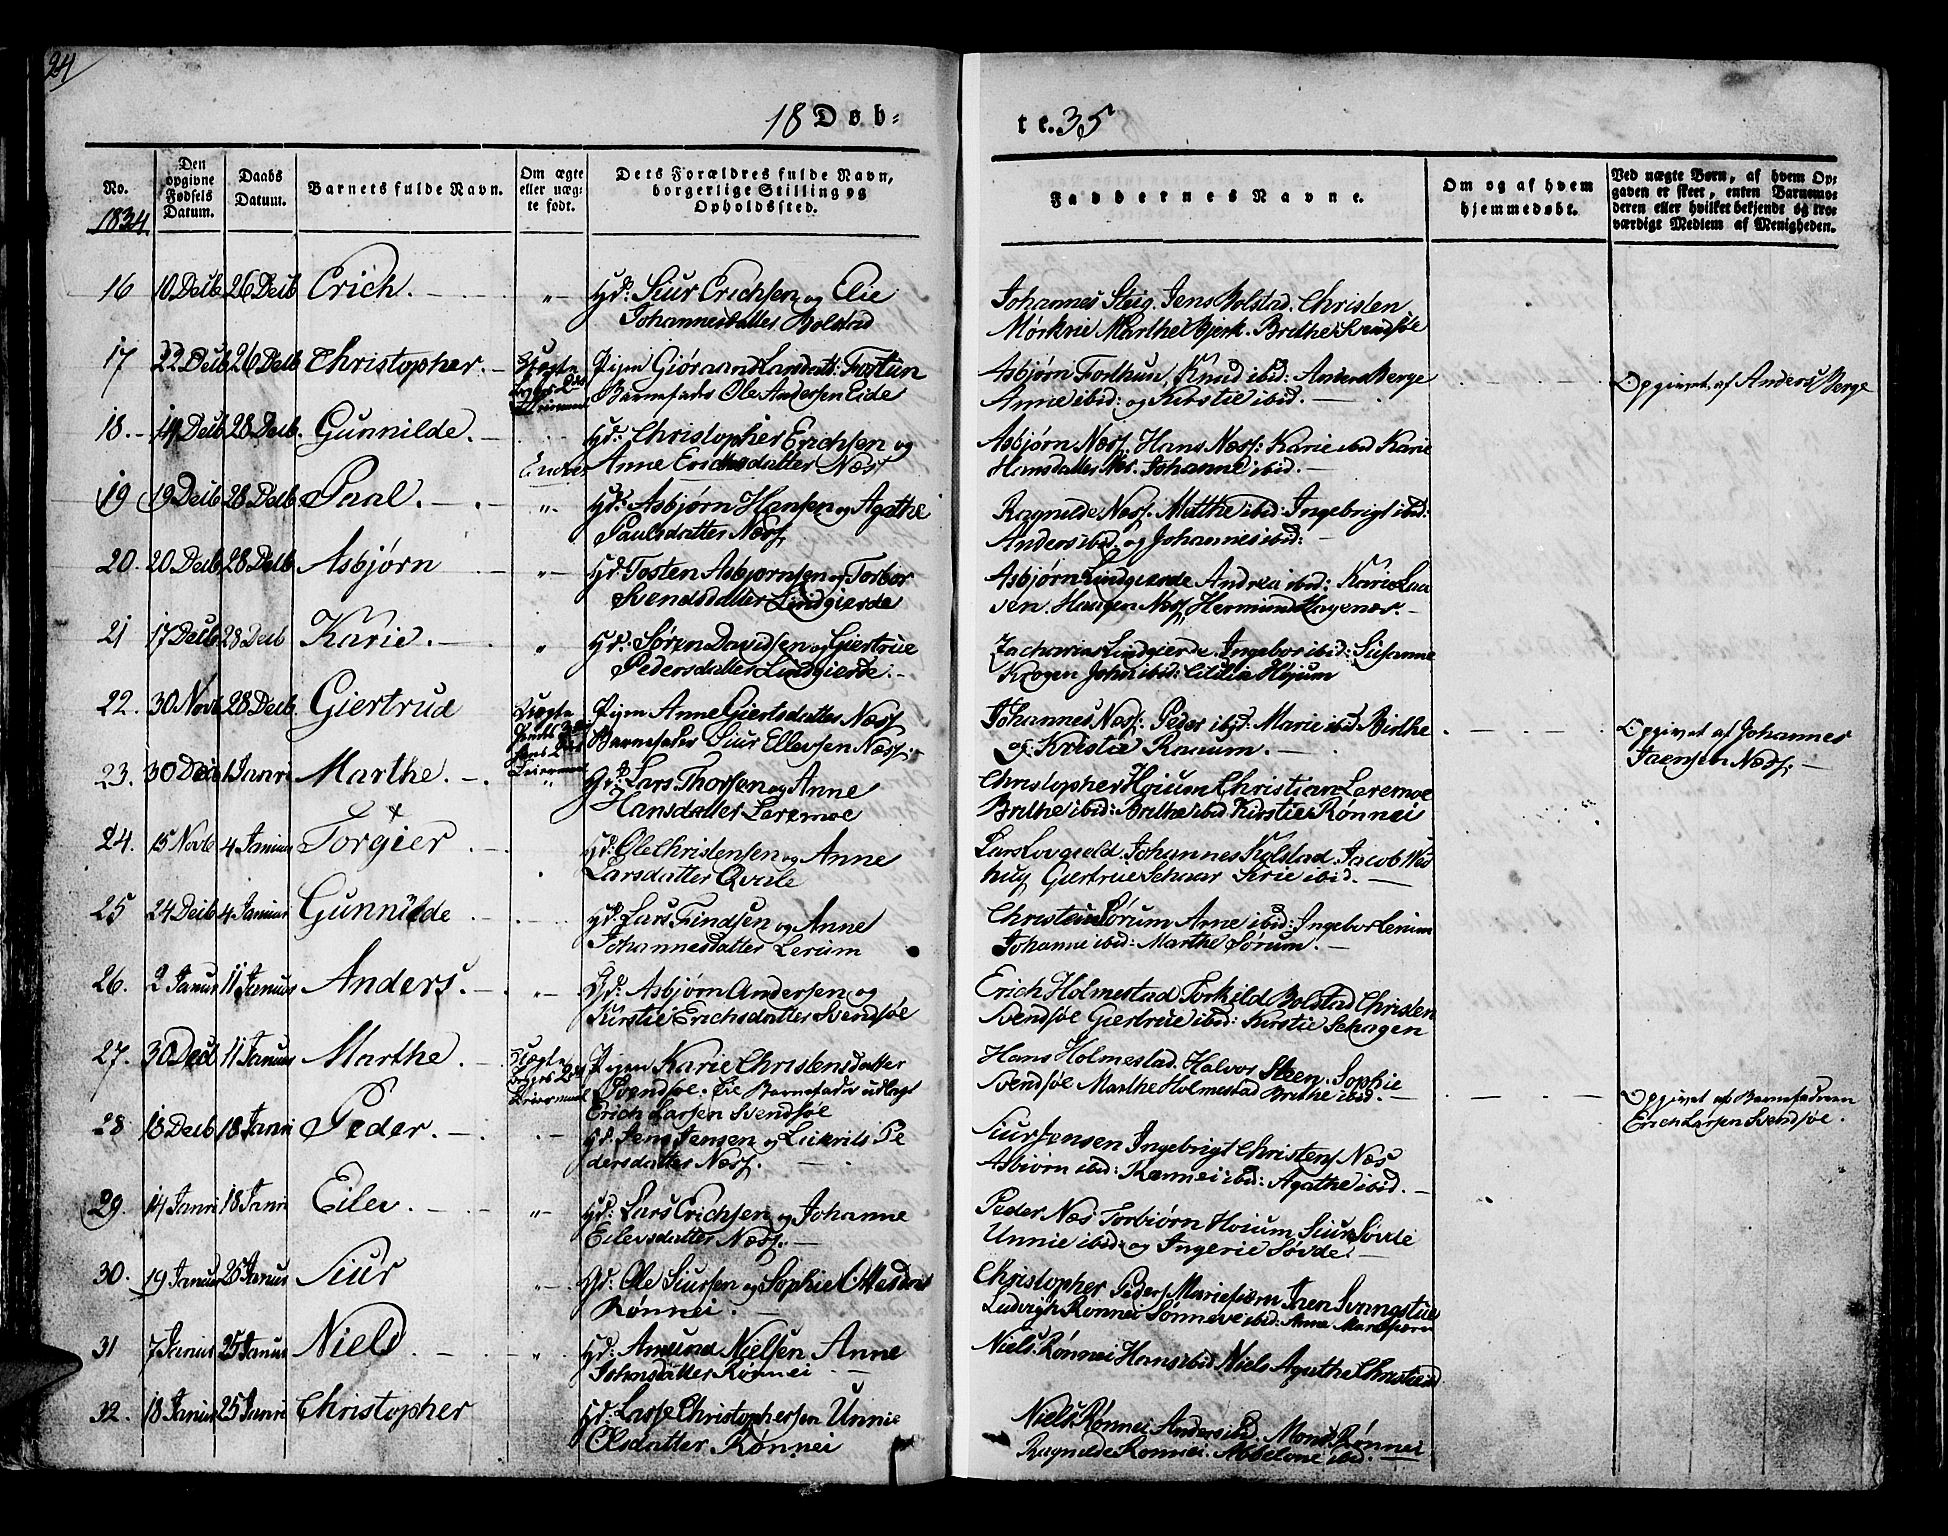 24
18 Døb=
te. 35
No.
1834.
Den opgivne Fødsels Datum.
Daabs Datum.
Barnets fulde Navn.
Om ægte eller uægte født.
Dets Forældres fulde Navn, borgerlige Stilling og Opholdssted.
Faddernes Navne.
Om og af hvem hjemmedøbt.
Ved uægte Børn, af hvem Opgaven er skeet, enten Barnemoderen eller hvilket bekjendt og troværdigt Medlem af Menigheden.
16 10 Decb 26 Decb Erich. Gd: Siur Erichsen og Elie
Johannesdatter Bolstad
Johannes Steig. Jens Bolstad. Christen
Mørkrie Marthe Bjerk. Brithe Svendsøe
17 22 Decb 26 Decb Christopher. Uægte Pigen Giøraand Larsdatt: Fostun
Barnefader Ole Andersen Eide
Asbjørn Forthun, Knud ibid: Anders Berge
Anne ibid: og Kirstie ibid.
Opgivet af Anders Berge
18. 14 Decb 28 Decb. Gunnilde. Gd: Christopher Erichsen og
Anne Erichsdatter Næss
Asbjørn Næss. Hans Næss: Karie ibid Karie
Hansdatter Næs. Johanne ibid.
19 19 Decb 28 Decb Paal. Gd: Asbjørn Hansen og Agathe
Paulsdatter Næss
Ragnilde Næss. Matthe ibid: Ingebrigt ibid:
Anders ibid. og Johannes ibid:
20. 20 Decb 28 Decb Asbjørn Gd: Tosten Asbjørnsen og Torbor
Svendsdatter Lindgierde
Asbjørn Lindgierde Andrea ibid: Karie Lau
sen. Haagen Næss Hermund Hagenæs.
21 17 Decb 28 Decb Karie. Gd: Søren Davidsen og Giertrue
Pedersdatter Lindgierde.
Zacharias Lindgierde. Ingebor ibid: Susanne
Krogen John ibid: Cicilia Høium
22. 30 Novb 28 Decb. Giertrud Uægte Pigen Anne Giertsdatter Næss
Barnefader Siur Ellevsen Næss.
Johannes Næss: Peder ibid: Marie ibid Birthe
og Kristie Raaum.
Opgivet af Johannes
Jaensen Næss.
23. 30 Decb 1 Janri Marthe. Gd: Lars Thorsen og Anne
Hansdatter Leremoe
Christopher Høium Christian Leremoe
Brithe ibid: Brithe ibid Kirstie Rønnei
24. 15 Novb 4 Januar Torgier Gd: Ole Christensen og Anne
Larsdatter Qvale
Lars Lovgield. Johannes Kolstad. Jacob
Giertrue Schaar Sirie ibid.
25 24 Decb 4 Januar Gunnilde Gd: Lars Findsen og Anne
Johannesdatter Lerum
Christen Sørum Anne ibid: Ingebor Lerum
Johanne ibid: Marthe Sørum.
26. 2 Januar 11 Januar Anders. Gd: Asbjørn Andersen og
Kirstie Erichsdatter Svendsøe
Erich Holmestad Torkild Bolstad Christen
Svendsøe Giertrue ibid: Kirstie Skagen
27. 30 Decb 11 Januar Marthe. Uægte Pigen Karie Christensdatter
Svendsøe. Til Barnefader udlagt
Erich Larsen Svendsøe
Hans Holmestad. Halvor Steen. Sophie
Svendsøe Marthe Holmestad Brithe ibid.
Opgivet af Barnefaderen
Erich Larsen Svendsøe.
28 18 Decb 18 Janri Peder. Gd: Jens Jensen og Lukrits Pe
dersdatter Næss.
Siur Jensen Ingebrigt Christens Næs
Asbiørn ibid: Rannei ibid: Agathe ibid.
29. 14 Janri 18 Janri Eilev. Gd: Lars Erichsen og Johanne
Eilevsdatter Næss.
Peder Næs Torbiørn Høium. Siur Søvde
Unnie ibid: og Ingerie Søvde.
30. 19 Januar 25 Januar Siur Gd: Ole Siursen og Sophie Ottesdatt
Rønnei.
Christopher Peders Iren
Ludvigh Rønnei Sønneve ibid: Anna
31 7 Januar 25 Januar Niels Gd: Amund Nielsen Anne
Johnsdatter Rønnei
Niels Rønnei Hans ibid Niels Agathe Christi ibid
32. 18 Januar 25 Janri Christopher Gd: Lasse Christophersen Unnie
Olsdatter Rønnei
Niels Rønnei Anders ibid. Mons Rønnei
Ragnilde Rønnei. Abbelone ibid.